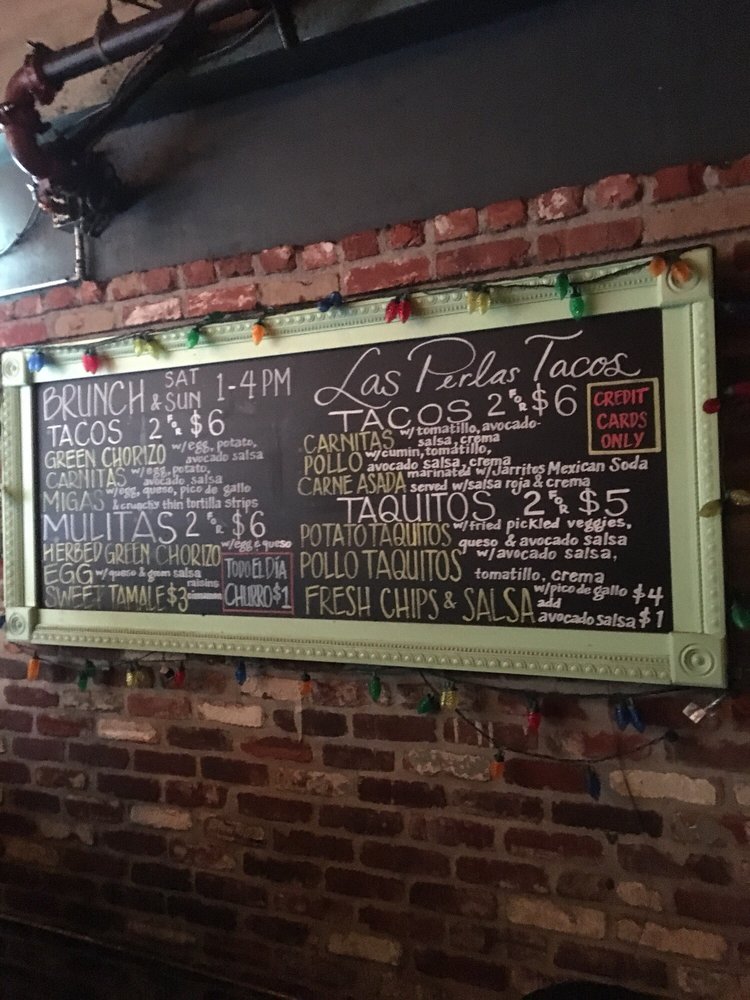 BRUNCH SAT & SUN 1-4 PM
TACOS 2 FOR $6
GREEN CHORIZO w/egg, potato, avocado salsa
CARNITAS w/egg, potato, avocado salsa
MIGAS w/egg, queso, pico de gallo & crunchy thin tortilla strips
MULITAS 2 FOR $6
HERBED GREEN CHORIZO w/egg & queso
EGG w/queso & green salsa
SWEET TAMALE $3 raisins cinnamon
TODO EL DÍA
CHURRO $1
Las Perlas Tacos
TACOS 2 FOR $6
CREDIT
CARDS
ONLY
CARNITAS w/tomatillo, avocado-salsa, crema
POLLO w/cumin, tomatillo, avocado salsa, crema
CARNE ASADA marinated w/Jarritos Mexican Soda served w/salsa roja & crema
TAQUITOS 2 FOR $5
POTATO TAQUITOS w/fried pickled veggies, queso & avocado salsa
POLLO TAQUITOS w/avocado salsa, tomatillo, crema
FRESH CHIPS & SALSA w/pico de gallo $4
add avocado salsa $1